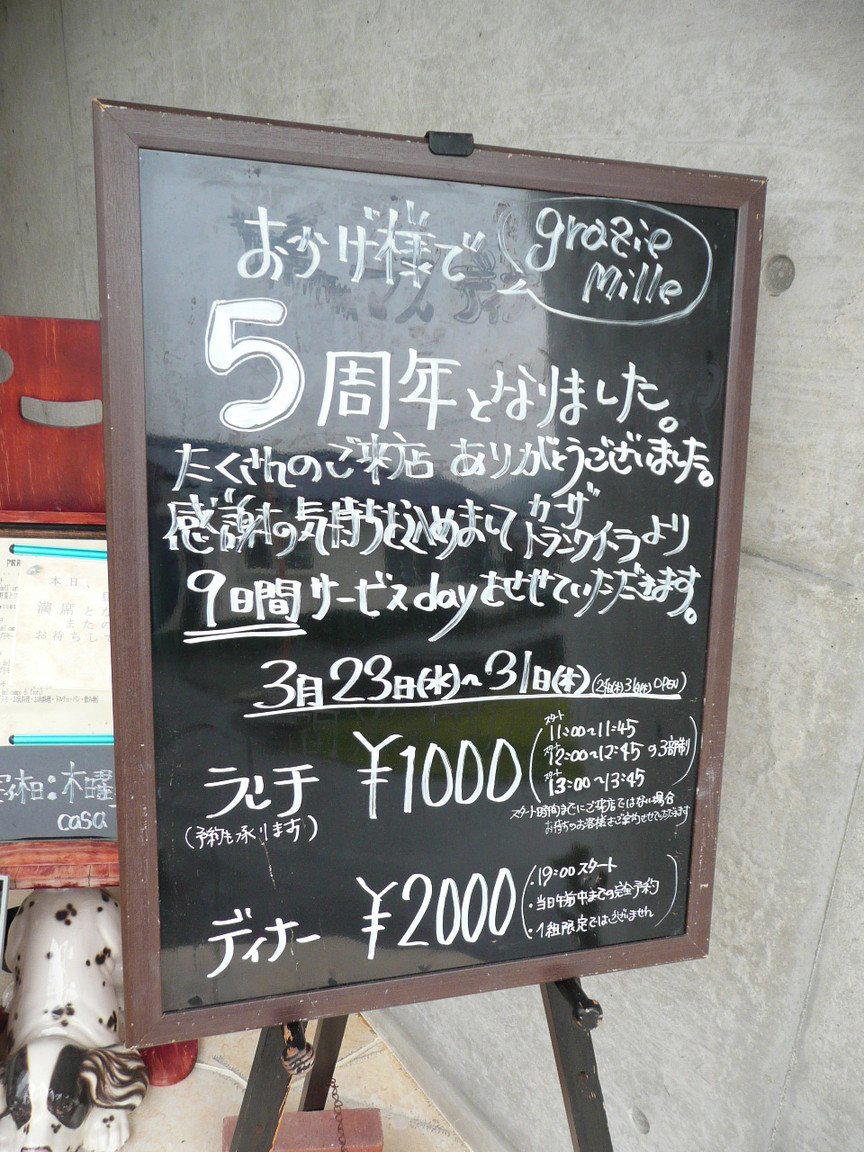 grazie
Mille
おかげ様で
5周年となりました。
たくさんのご来店 ありがとうございました。
感謝の気持ちを込めまして カーザ
トランクイッラより
9日間サービスdayをさせていただきます。
3月23日(水)〜31日(木)(24日(木)31日(木)OPEN)
ランチ ¥1000
(予約も承ります)
スタート
11:00〜11:45
スタート
12:00〜12:45 の3部制
スタート
13:00〜13:45
スタート時間までにご来店ではない場合
お待ちのお客様をご案内させていただきます
ディナー ¥2000
・19:00スタート
・当日午前中までの完全予約
・1組限定ではございません
本日、
満席とな
またの
お待ちして
休日:木曜
casa